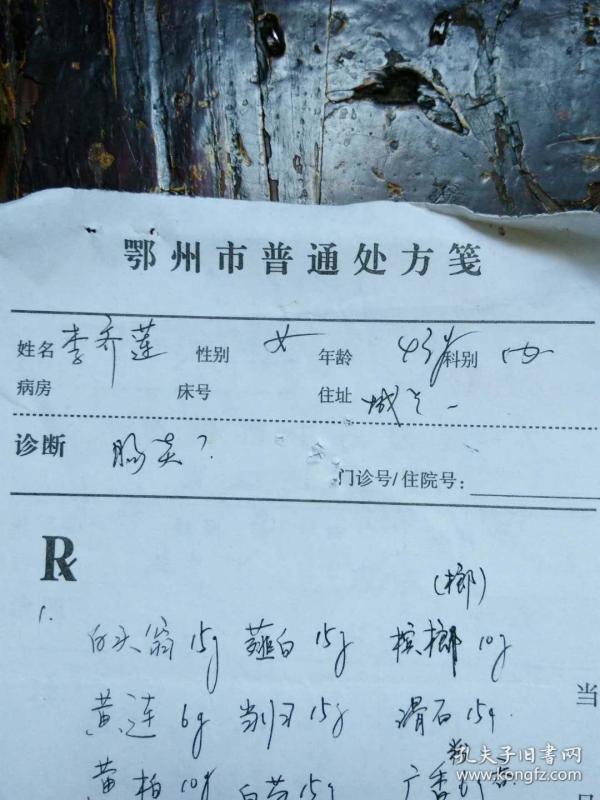 鄂州市普通处方笺
姓名 李乔莲 性别 女 年龄 43岁 科别 内
病房 床号 住址 城
诊断 肠炎?
门诊号/住院号:
R
(榔)
1.
白头翁 15g 薤白 15g 槟榔 10g
黄连 6g 当归 15g 滑石 15g
当
黄柏 10g 白芍 15g 广香
孔夫子旧书网
www.kongfz.com